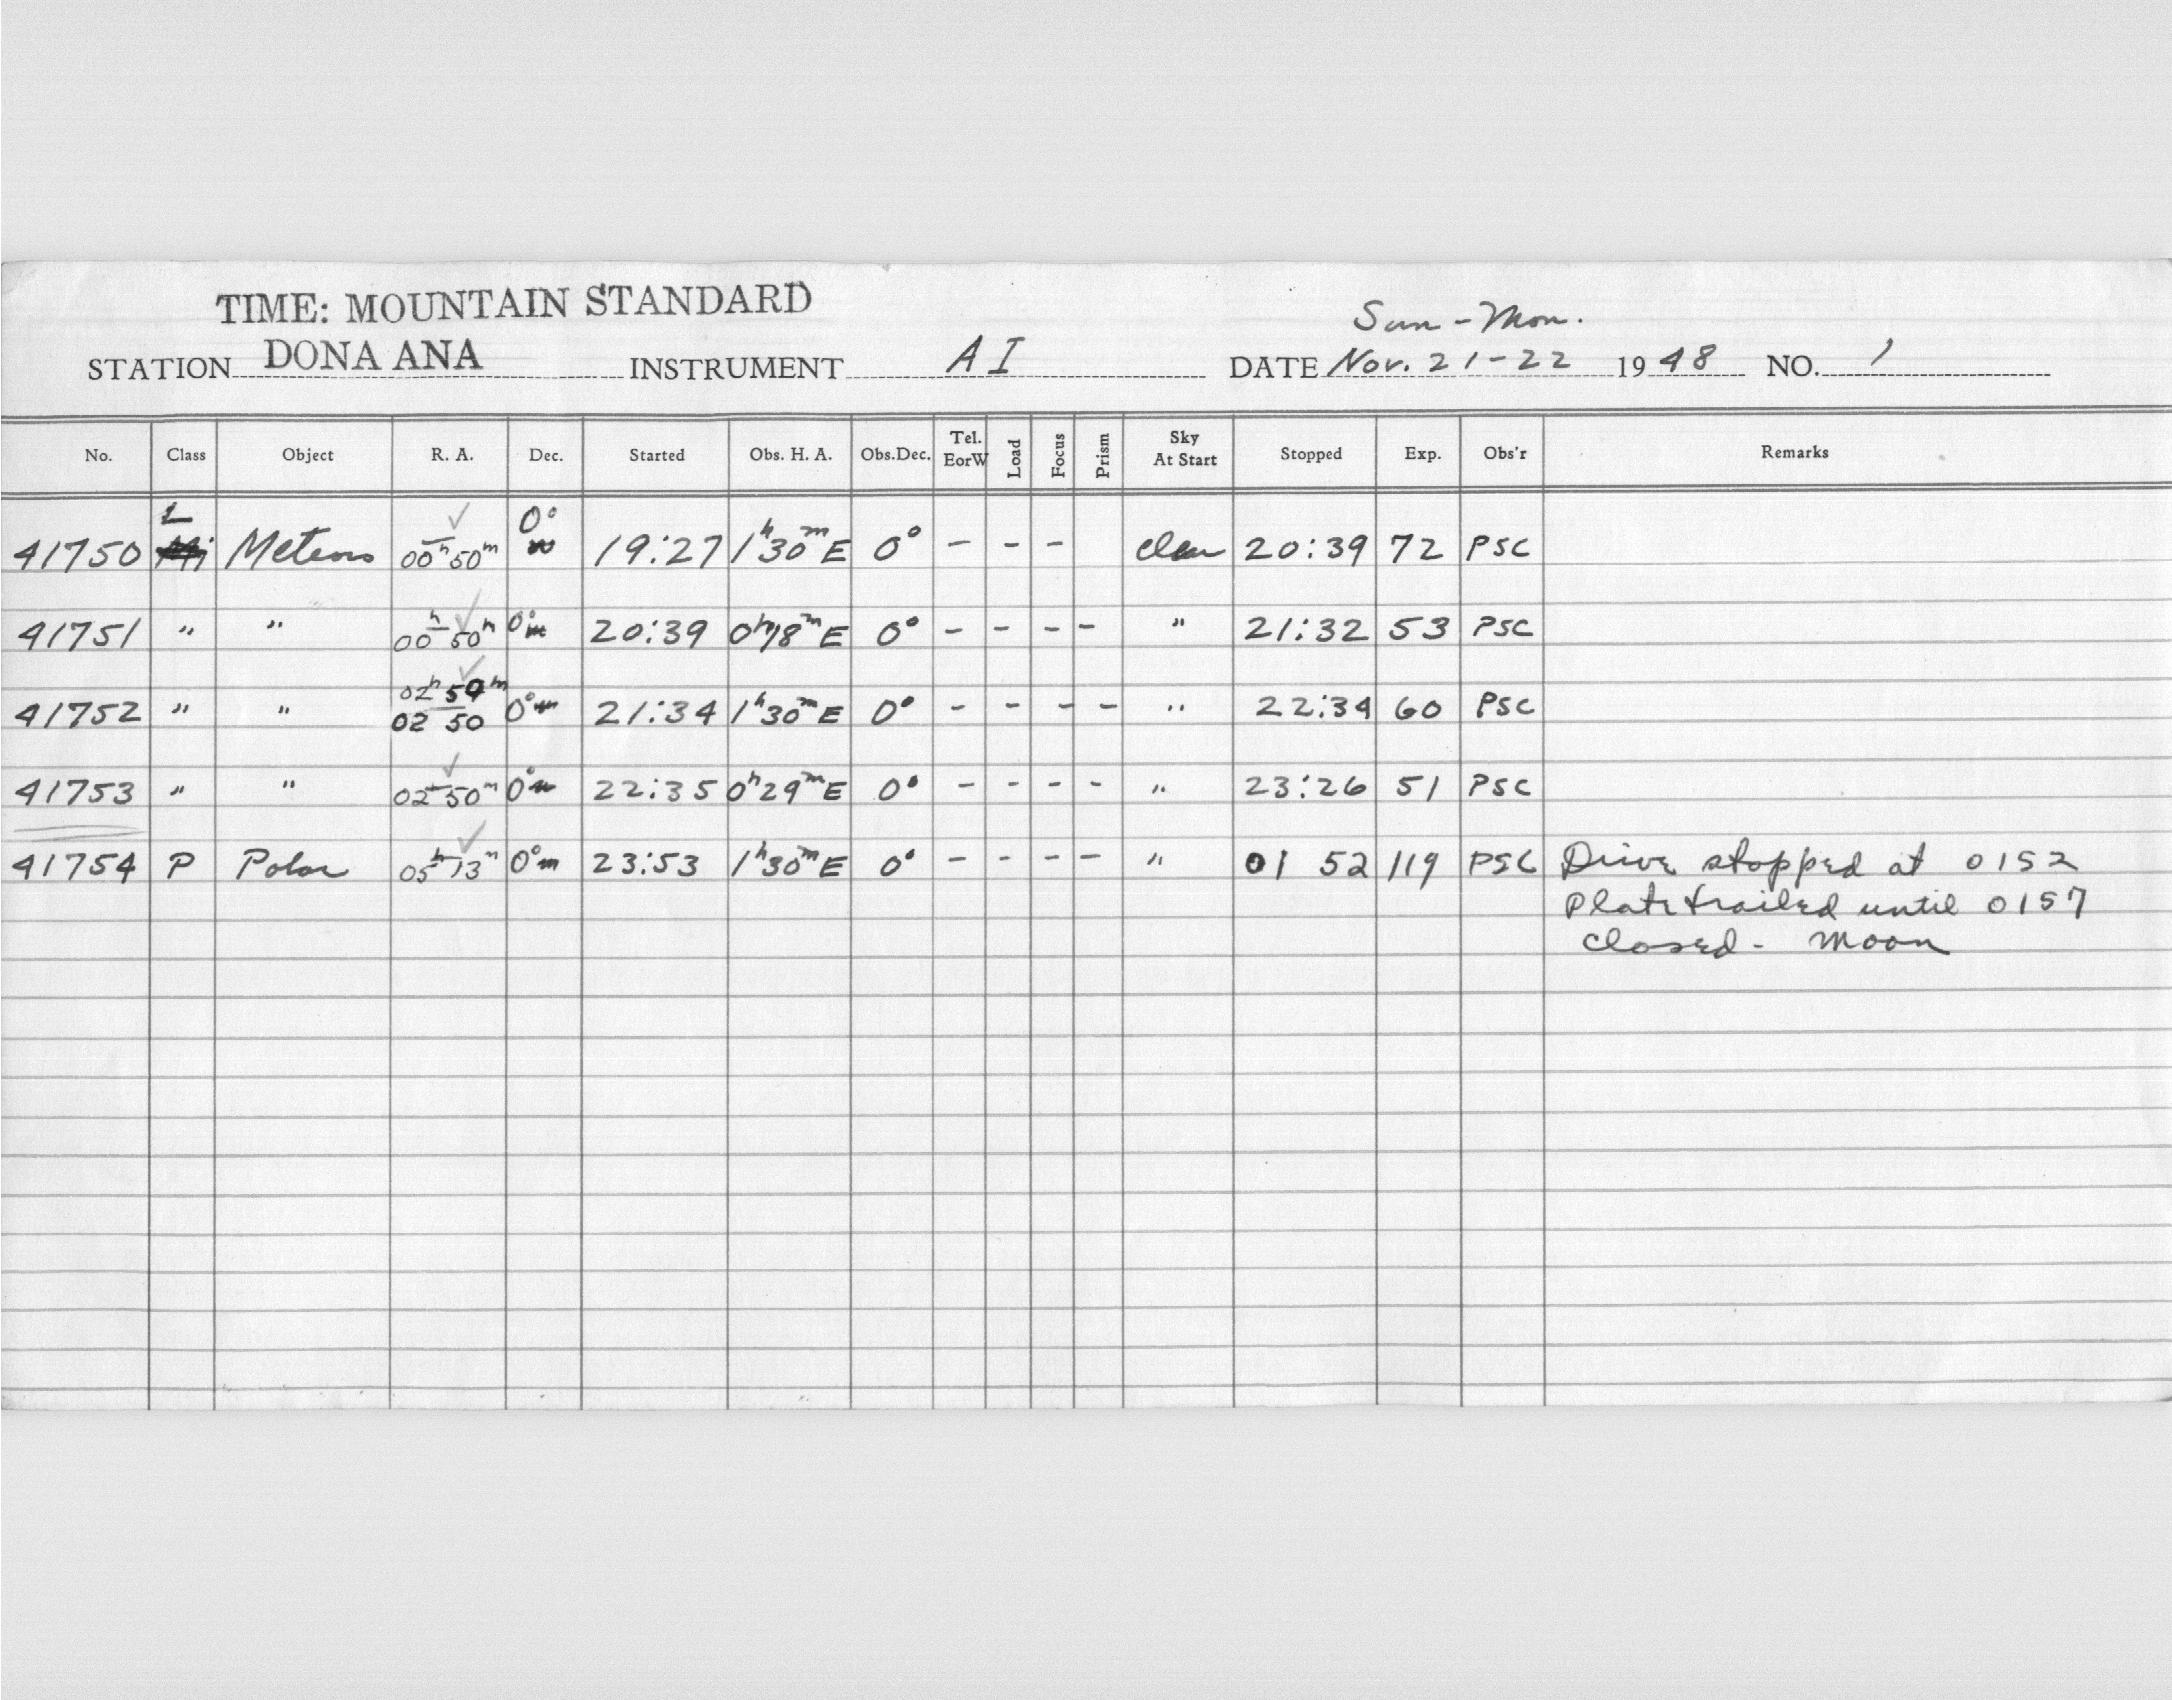 TIME: MOUNTAIN STANDARD
Sun - Mon.
STATION DONA ANA INSTRUMENT AI DATE Nov. 21-22 1948 NO. 1
No. Class Object R. A. Dec. Started Obs. H. A. Obs.Dec. Tel. EorW Load Focus Prism Sky At Start Stopped Exp. Obs'r Remarks
L 0°
41750 Meteors 00h 50m 19:27 1h30mE 0° - - - clear 20:39 72 PSC
41751 " " 00h 50m 0° 20:39 0h18mE 0° - - - - " 21:32 53 PSC
02h 50m
41752 " " 02 50 0° 21:34 1h30mE 0° - - - - " 22:34 60 PSC
41753 " " 02h 50m 0° 22:35 0h29mE 0° - - - - " 23:26 51 PSC
41754 P Polar 05h 13m 0° 23:53 1h30mE 0° - - - - " 01 52 119 PSC Drive stopped at 0152
Plate trailed until 0157
closed - moon